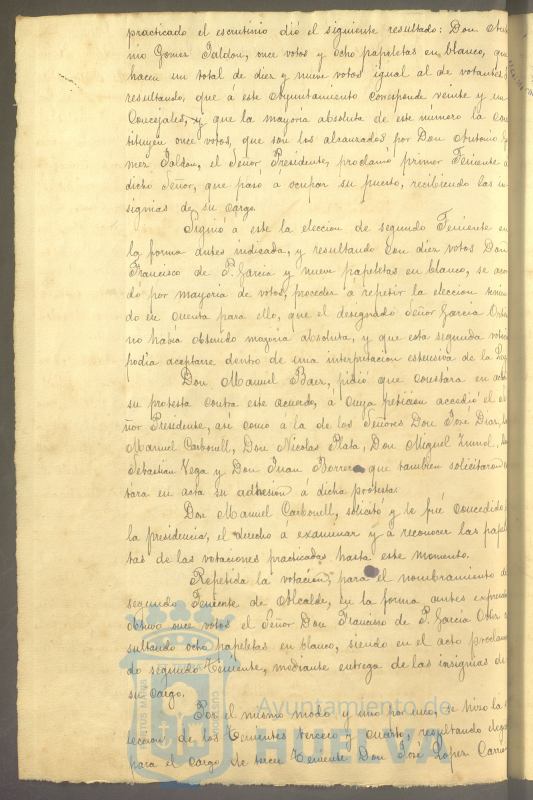 practicado el escrutinio dió el siguiente resultado: Don Anto
nio Gomez Jaldon, once votos y ocho papeletas en blanco, que
hacen un total de diez y nueve votos igual al de votantes;
resultando, que á este Ayuntamiento corresponde veinte y un
Concejales, y que la mayoria absoluta de este número la con
stituyen once votos, que son los alcanzados por Don Antonio Go
mez Jaldon, el Señor Presidente, proclamó primer Teniente á
dicho Señor, que pasó á ocupar su puesto, recibiendo las in
signias de su cargo.
Siguió á este la eleccion de segundo Teniente en
la forma antes indicada, y resultando con diez votos Don
Francisco de P. Garcia y nueve papeletas en blanco, se acor
dó por mayoria de votos, proceder á repetir la eleccion tenien
do en cuenta para ello, que el designado Señor Garcia Ortiz
no habia obtenido mayoria absoluta, y que esta segunda vota
podia aceptarse dentro de una interpretacion estensiva de la Ley
Don Manuel Baez, pidió que constara en acta
su protesta contra este acuerdo, á cuya peticion accedió el Se
ñor Presidente, asi como á la de los Señores Don José Diaz,
Manuel Carbonell, Don Nicolas Plata, Don Miguel
Sebastian Vega y Don Juan Borrero que tambien solicitaron
tara en acta su adhesion á dicha protesta.
Don Manuel Carbonell, solicitó y le fué concedido
la presidencia, el derecho á examinar y á reconocer las papele
tas de las votaciones practicadas hasta este momento.
Repetida la votacion, para el nombramiento de
segundo Teniente de Alcalde, en la forma antes expresada
obtuvo once votos el Señor Don Francisco de P. Garcia Ortiz re
sultando ocho papeletas en blanco, siendo en el acto proclama
do segundo Teniente, mediante entrega de las insignias de
su cargo.
Por el mismo modo y uno por uno, se hizo la
eleccion de los Tenientes tercero y cuarto, resultando elegido
para el cargo de tercer Teniente Don José Lopez
Ayuntamiento de
HUELVA